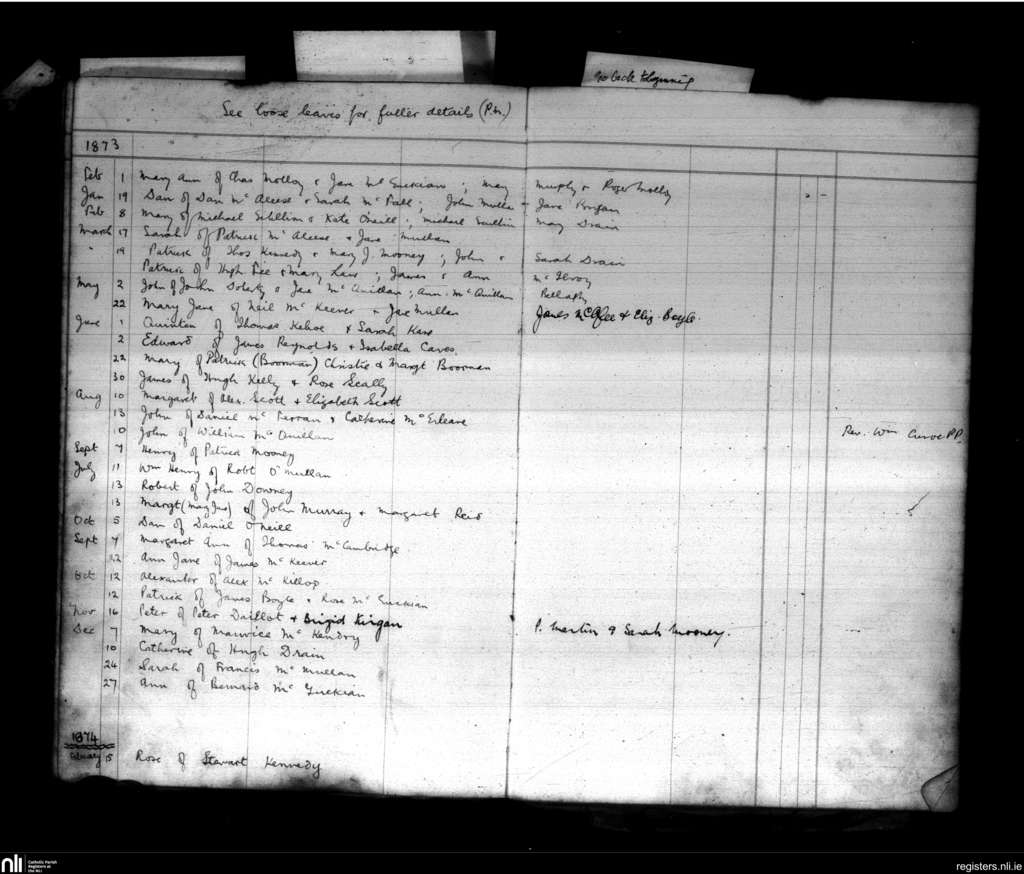 go back to beginning
See loose leaves for fuller details (P.M.)
1873
Feb 1 Mary Ann of Chas Molloy & Jane Mc Guckian ; May Murphy & Roger Molloy
Jan 19 Dan of Dan Mc Aleese & Sarah Mc Fall ; John Mullan Jane
Feb 8 Mary of Michael Scullin & Kate O'neill ; Michael Scullin May Drain
March 17 Sarah of Patrick Mc Aleese & Jane Mullan
" 19 Patrick of Thos Kennedy & Mary J. Mooney ; John & Sarah Drain
Patrick of Hugh Lee & Mary Law ; James & Ann Mc Ilroy
May 2 John of John Doherty & Jane Mc Quillan ; Ann Mc Quillan Bellaghy
22 Mary Jane of Neil Mc Keever & Jane Mullan James McAfee & Eliz. Boyle.
June 1 Quinton of Thomas Kehoe & Sarah Kane
2 Edward of James Reynolds & Isabella Caves.
22 Mary of Patrick (Boorman) Christie & Margt Boorman
30 James of Hugh Kelly & Rose Scally
Aug 10 Margaret of Alex. Scott & Elizabeth Scott
13 John of Daniel Mc Ferran & Catherine Mc Erleane
10 John of William Mc Quillan Rev. Wm Curoe P.P.
Sept 7 Henry of Patrick Mooney
July 11 Wm Henry of Robt O'Mullan
13 Robert of John Downey
13 Margt of John Murray & Margaret Reid
Oct 5 Dan of Daniel O'Neill
Sept 7 Margaret Ann of Thomas McCambridge
22 Ann Jane of James Mc Keever
Oct 12 Alexander of Alex Mc Killop
12 Patrick of James Boyle & Rose Mc Guckian
Nov 16 Peter of Peter Daillot & Brigid Kirgan
Dec 7 Mary of Maurice Mc Kendry P. Martin & Sarah Mooney.
10 Catherine of Hugh Drain
24 Sarah of Francis Mc Mullan
27 Ann of Bernard Mc Guckian
1874
February 15 Rose of Stewart Kennedy
nli
Catholic Parish
Registers at
the NLI
registers.nli.ie